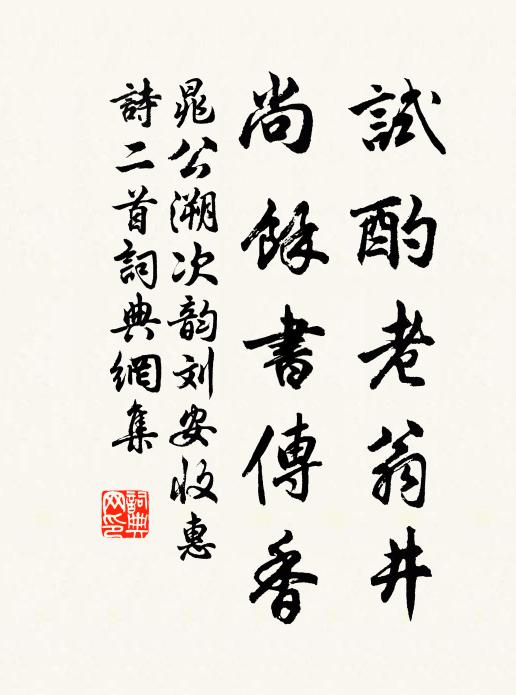 試酌老翁井
尚餘書傳香
晁公溯次韵刘安收惠
詩二首詞典網集
詞典网印